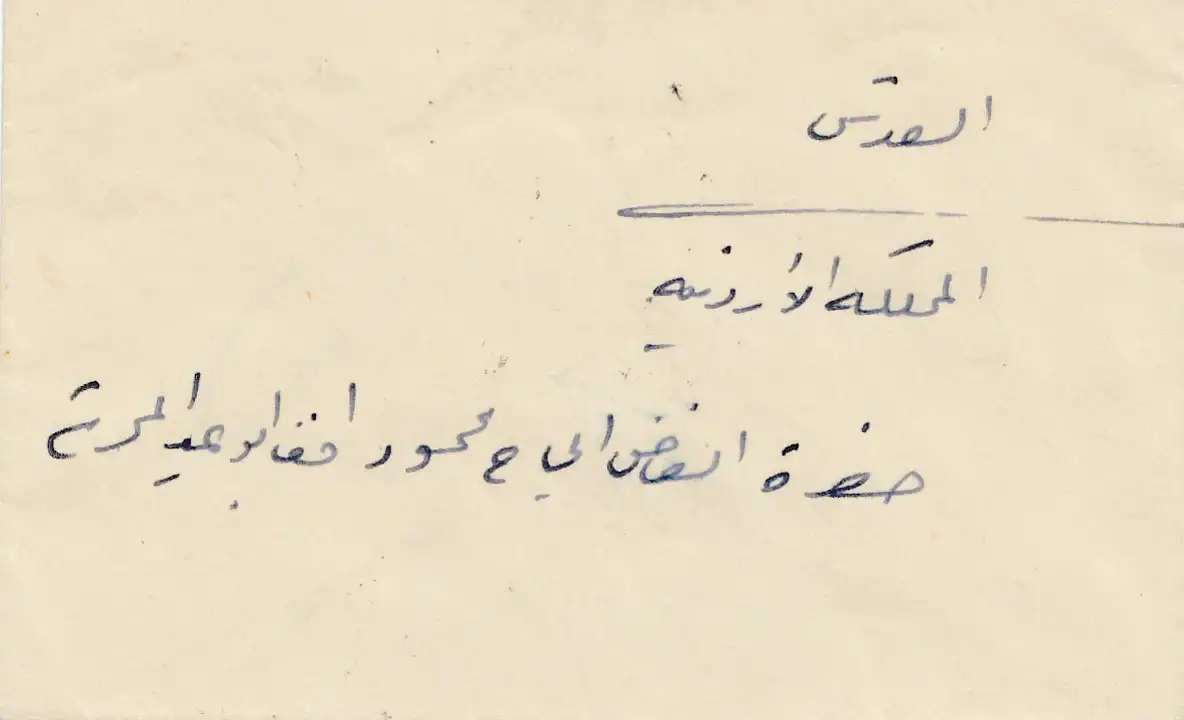 القدس
المملكه الأردنيه
حضرة الفاضل الحاج محمود افندي ابو عيد المحترم